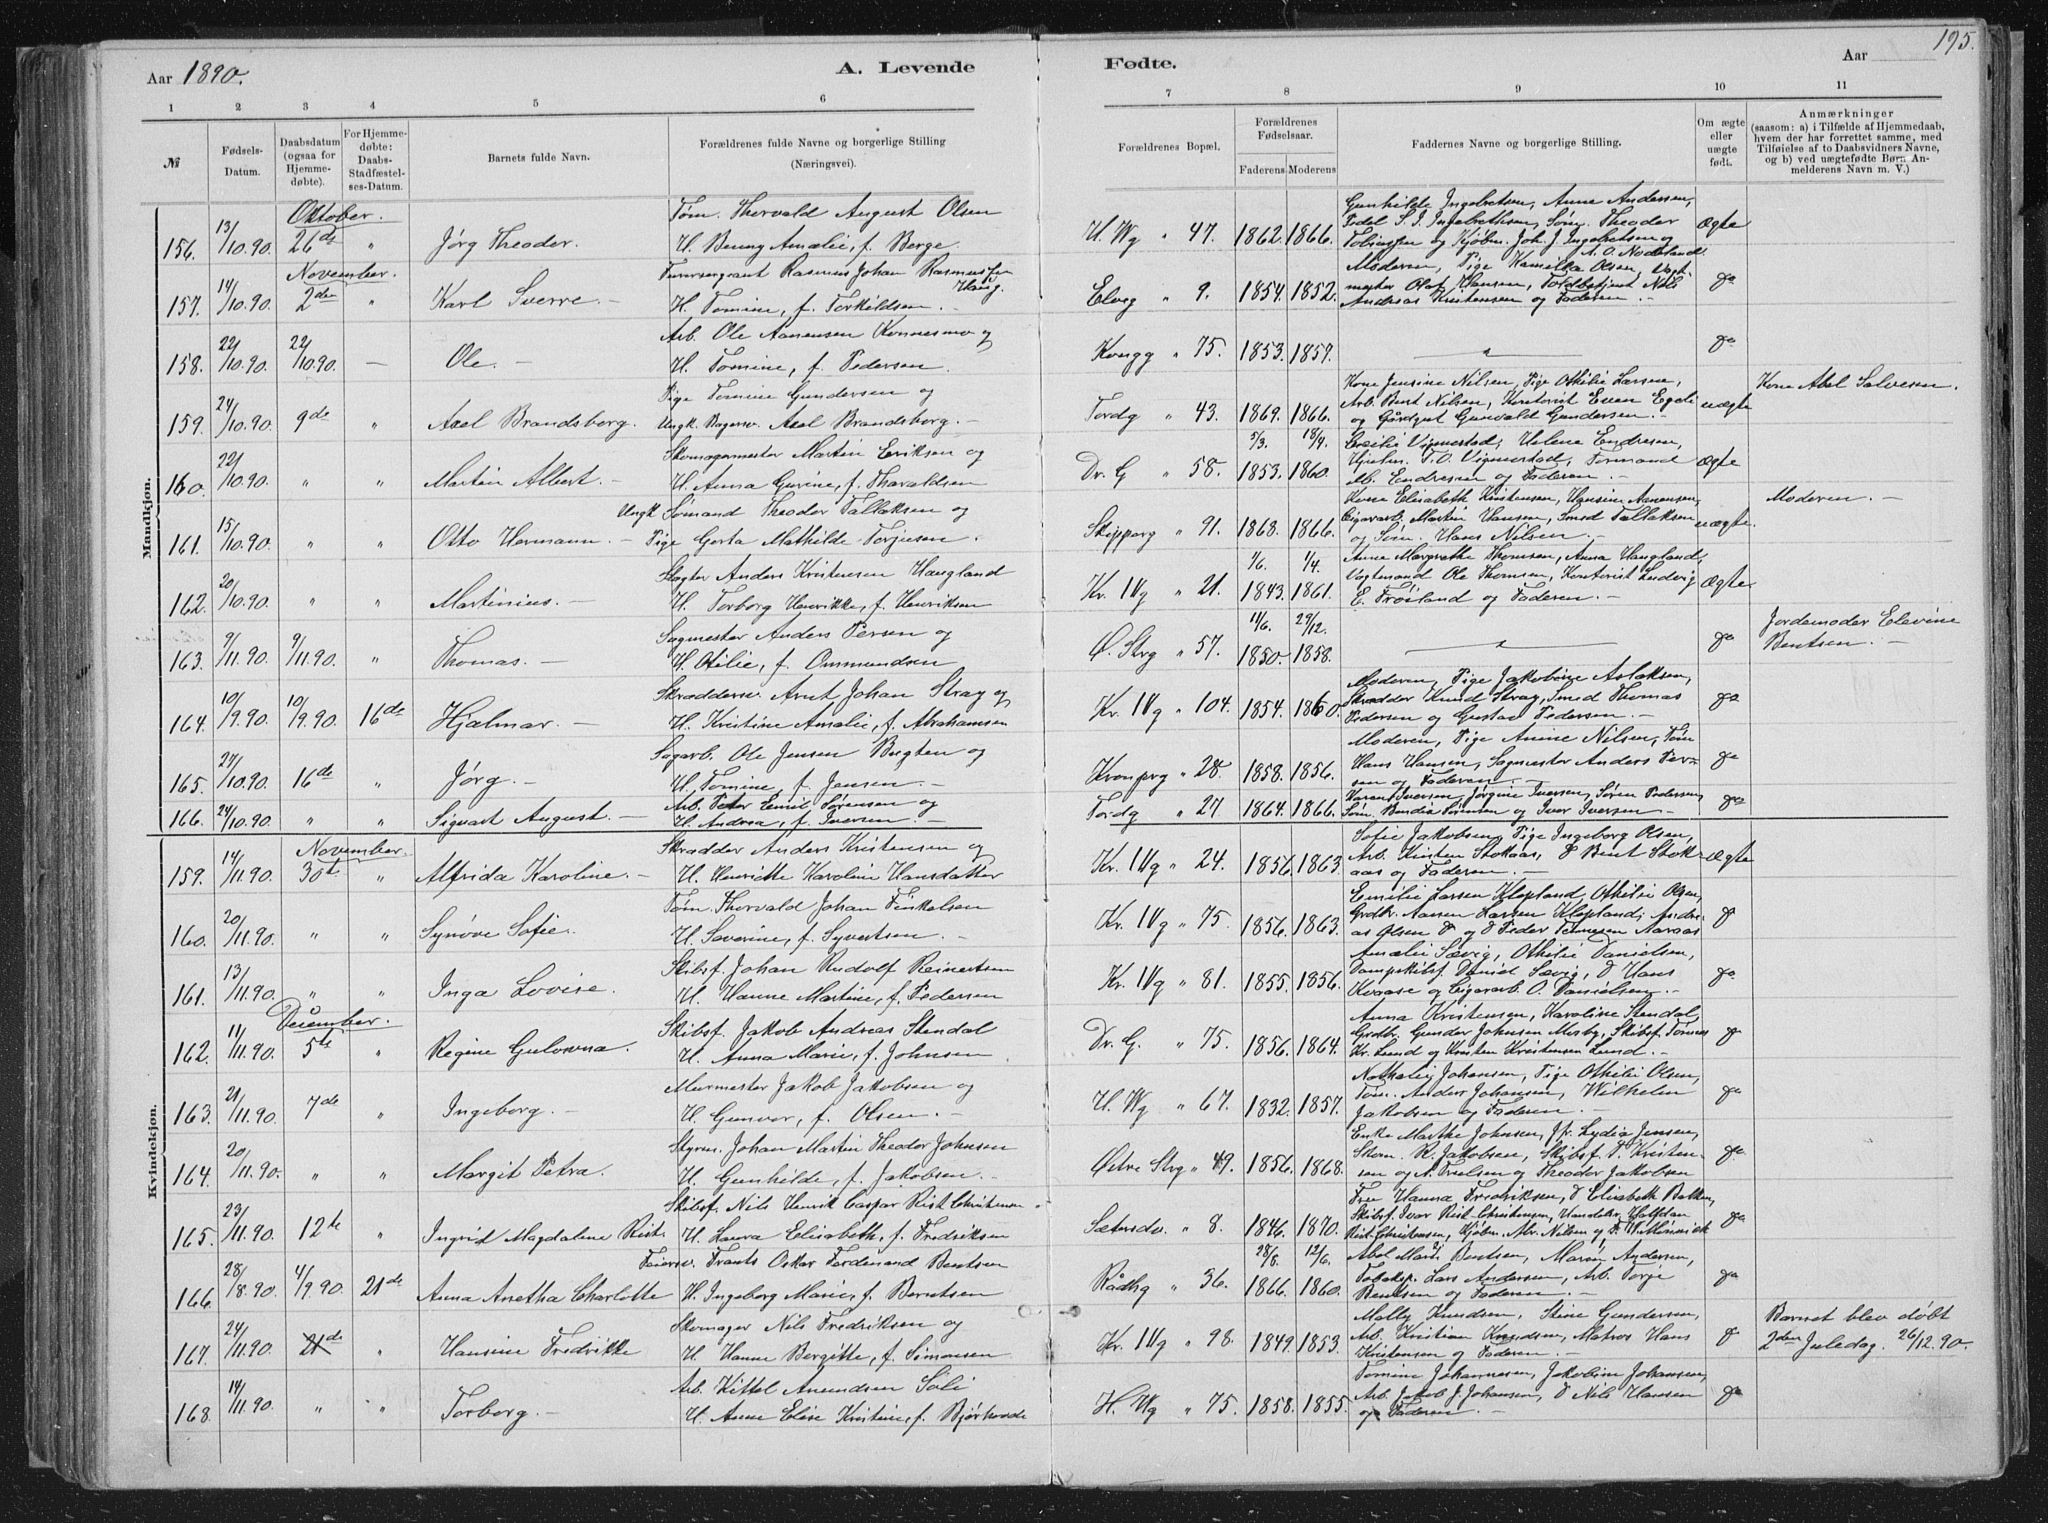 195.
Aar 1890. A. Levende Fødte. Aar
1 2 3 4 5 6 7 8 9 10 11
№ Fødsels-Datum. Daabsdatum (ogsaa for Hjemme-døbte). For Hjemme-døbte: Daabs-Stadfæstel-ses-Datum. Barnets fulde Navn. Forældrenes fulde Navne og borgerlige Stilling (Næringsvei). Forældrenes Bopæl. Forældrenes Fødselsaar. Faderens Moderens Faddernes Navne og borgerlige Stilling. Om ægte eller uægte født. Anmærkninger (saasom: a) i Tilfælde af Hjemmedaab, hvem der har forrettet samme, med Tilføielse af to Daabsvidners Navne, og b) ved uægtefødte Børn An-melderens Navn m. V.)
Mandkjøn.
Oktober.
156. 13/10.90. 26de " Jørg Theodor. Tøm. Thorvald August Olsen H. Benny Amalie, f. Berge. H. Wg " 47. 1862. 1866. Gunhilde Ingebretsen, Anne Andersen, Tobiassen og Kjøbm. Joh. J. Ingebretsen og A. O. Nodeland. Ægte
November.
157. 14/10.90. 2den " Karl Sverre. – Rasmus Johan Rasmussen Haug. H. Tomine, f. Torkildsen. – Elveg " 9. 1854. 1852. Moderen, Pige Kamilla Olsen, Vogt-mester Olaf Hansen, Toldbetjent Nils Andreas Kristensen og Faderen. – do
158. 22/10.90. 22/10.90. – Ole. – Arb. Ole Aanensen Konnesmo og H. Tomine, f. Pedersen. Kongg " 75. 1853. 1859. " do
159. 24/10.90. 9de " Axel Brandsborg. Pige Tomine Gundersen og Ungk. Bagersv. Axel Brandsborg. – Tordg " 43. 1869. 1866. Kone Jensine Nilsen, Pige Othilie Larsen, Arb. Bent Nilsen, Kontorist Even Egeli og Gårdgut Gunvald Gundersen. – uægte Kone Abel Salvesen.
160. 22/10.90. " " Martin Albert. – Skomagermester Martin Eriksen og H. Anna Gurine, f. Tharaldsen Dr. G " 58. 5/3. 1853. 18/4. 1860. Cecilie Vigmestad, Helene Endresen, T. O. Vigmestad, Formand M. Endresen og Faderen. – Ægte
161. 15/10.90. " " Otto Hermann. – Ungk Sømand Theodor Tallaksen og Pige Gerta Mathilde Torjusen. Skipperg " 91. 1863. 1866. Kone Elisabeth Kristensen, Hansine Aanensen, Cigararb. Martin Hansen, Smed Tallaksen og Søm. Hans Nilsen – uægte. Moderen. –
162. 20/10.90. " " Martinius. – Slagter Anders Kristensen Haugland H. Torborg Henrikke, f. Henriksen Kr. IVg " 21. 1/6. 1843. 1/4. 1861. Anne Margrethe Thomsen, Anna Haugland, Vogtmand Ole Thomsen, Kontorist Ludvig E. Frøisland og Faderen. – Ægte.
163. 9/11.90. 9/11.90. " Thomas. – Sagmester Anders Persen og H. Otilie, f. Ommundsen Ø. Strg " 57. 11/6. 1850. 29/12. 1858. " do Jordemoder Elevine Bentsen. –
164. 10/9.90. 10/9.90. 16de Hjalmar. – Skræddersv. Arnt Johan Stray og H. Kristine Amalie, f. Abrahamsen Kr. IVg " 104. 1854. 1860. Moderen, Pige Jakobine Aslaksen, Skrædder Knud Stray, Smed Thomas Pedersen og Gustav Pedersen. – do
165. 27/10.90. 16de " Jørg. – Sagarb. Ole Jensen Bugten og H. Tomine, f. Jensen. – Kronprg " 28. 1858. 1856. Moderen, Pige Anine Nilsen, Tøm Hans Hansen, Sagmester Anders Per-sen og Faderen. – do
166. 24/10.90. " " Sigvart August. – Arb. Peter Emil Sørensen og H. Andrea, f. Iversen. – Tordg " 27 1864. 1866. Karen Iversen, Jørgine Iversen, Søren Pedersen, Søm. Bendix Sørensen og Iver Iversen. – do
Kvindekjøn.
November.
159. 14/11.90. 30te " Alfrida Karoline. – Skrædder Anders Kristensen og H. Henriette Karoline Hansdatter Kr. IVg " 24. 1856. 1863. Sofie Jakobsen, Pige Ingeborg Olsen, Arb. Kristen Stokaas, do Bent Stok-aas og Faderen. – Ægte
160. 20/11.90. " " Synøve Sofie. Tøm. Thorvald Johan Finkelsen H. Severine, f. Syvertsen. Kr. IVg " 75. 1856. 1863. Emilie Larsen Klepland, Othilie Olsen, Grdbr. Aanen Larsen Klepland, Andre-as Olsen do og do Peder Tønnesen Aaraas do
161. 13/11.90. " " Inga Lovise. Skibsf. Johan Rudolf Reinertsen H. Hanne Martine, f. Pedersen Kr. IVg " 81. 1855. 1856. Amalie Sævig, Othilie Danielsen, Dampskibsf. Daniel Sævig, do Hans Kvaase og Cigararb. O. Danielsen. – do
December.
162. 11/11.90. 5te " Regine Gulowna. Skibsf. Jakob Andreas Stendal H. Anna Marie, f. Johnsen Dr. G. " 75. 1856. 1864. Anna Kristensen, Karoline Stendal, Grdbr. Gunder Johnsen Mosby, Skibsf. Tønnes Kr. Lund og Kristen Kristensen Lund. – do
163. 21/11.90. 7de " Ingeborg. – Murmester Jakob Jakobsen og H. Gunvor, f. Olsen. – H. Wg " 67. 1832. 1857. Nathalie Johansen, Pige Othilie Olsen, Tøm. Anders Johansen, Wilhelm Jakobsen og Faderen. – do
164. 20/11.90. " " Margit Petra. Styrm. Johan Martin Theodor Johnsen H. Gunhilde, f. Jakobsen. – Østre Strg " 49. 1856. 1868. Enke Marthe Johnsen, Jfr. Lydia Jensen, Skom. R. Jakobsen, Skibsf. P. Kristen-sen og Theodor Jakobsen do
165. 23/11.90. 12te " Ingrid Magdalene Rist. Skibsf. Nils Henrik Caspar Rist Christensen " H. Laura Elisabeth, f. Fredriksen Sætersdv. " 8. 1846. 1870. Frue Hanna Fredriksen, do Elisabeth Balken, Skibsf. Ivar Rist-Christensen, Handelsr. Halfdan Rist-Christensen, Kjøbm. Mr. Nilsen do
166. 28/8.90. 4/9.90. 21de Anna Anetha Charlotte Feiersv. Frants Oskar Ferdinand Bentsen H. Ingeborg Marie, f. Berntsen Rådhg " 36. 28/8. 1866. 12/6. 1860. Abel Marie Bentsen, Maren Andersen, Lars Andersen, Arb. Torje Bentsen og Faderen. – do
167. 24/11.90. 21de " Hansine Fredrikke Skomager Nils Fredriksen og H. Hanne Bergitte, f. Simonsen Kr. IVg " 98. 1849. 1853. Molly Knudsen, Stine Gundersen, Arb. Kristian Knudsen, Matros Hans Kristensen og Faderen. – do Barnet blev døbt 2den Juledag. 26/12.90.
168. 14/11.90. " " Torborg. – Arb. Kittel Anundsen Soli H. Anne Elise Kristine, f. Bjørhovde H. Wg " 75. 1858. 1855. Tomine Johannesen, Jakobine Johansen, Arb. Jakob J. Johansen, do Nils Hansen og Faderen. – do